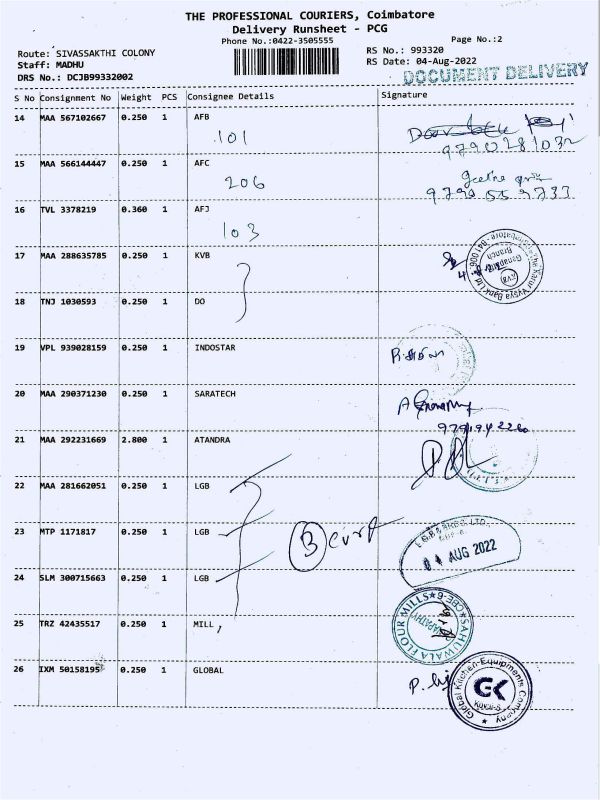 THE PROFESSIONAL COURIERS, Coimbatore
Delivery Runsheet - PCG
Phone No.:0422-3505555
Page No.:2
Route: SIVASSAKTHI COLONY
RS No.: 993320
Staff: MADHU
RS Date: 04-Aug-2022
DRS No.: DCJB99332002
DOCUMENT DELIVERY
S No Consignment No Weight PCS Consignee Details Signature
14 MAA 567102667 0.250 1 AFB
101
9790281032
15 MAA 566144447 0.250 1 AFC
206
16 TVL 3378219 0.360 1 AFJ
103
17 MAA 288635785 0.250 1 KVB
The Karur Vysya Bank Ltd
Ganapathy Branch
KVB
Coimbatore - 641 006
18 TNJ 1030593 0.250 1 DO
19 VPL 939028159 0.250 1 INDOSTAR
20 MAA 290371230 0.250 1 SARATECH
21 MAA 292231669 2.800 1 ATANDRA
22 MAA 281662051 0.250 1 LGB
23 MTP 1171817 0.250 1 LGB
3
04 AUG 2022
24 SLM 300715663 0.250 1 LGB
25 TRZ 42435517 0.250 1 MILL,
SAHUWALA FLOUR MILLS
CBE-6
26 IXM 50158195 0.250 1 GLOBAL
Global Kitchen Equipments Company
GK